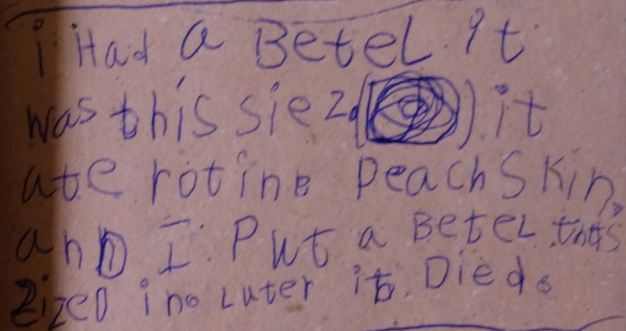 i Had a BeteL. it
was this siez. ( ). it
ate roting peach skin,
anD I. Put a BeteL this
sized in. Luter it. Died.